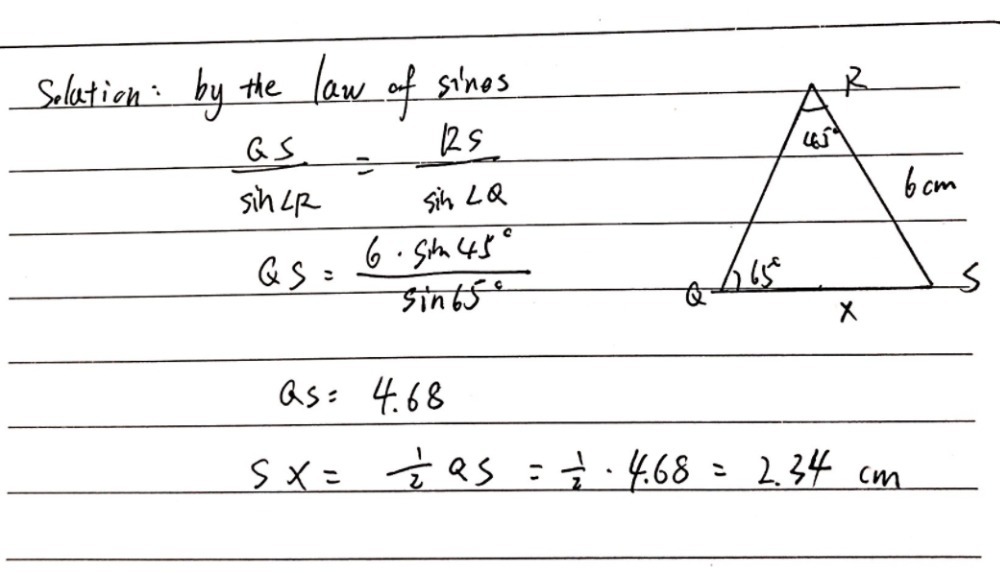 Solution: by the law of sines
QS / sin∠R = RS / sin∠Q
QS = 6 · sin45° / sin65°
QS = 4.68
SX = 1/2 QS = 1/2 · 4.68 = 2.34 cm
R
45°
6 cm
Q 65° S
X